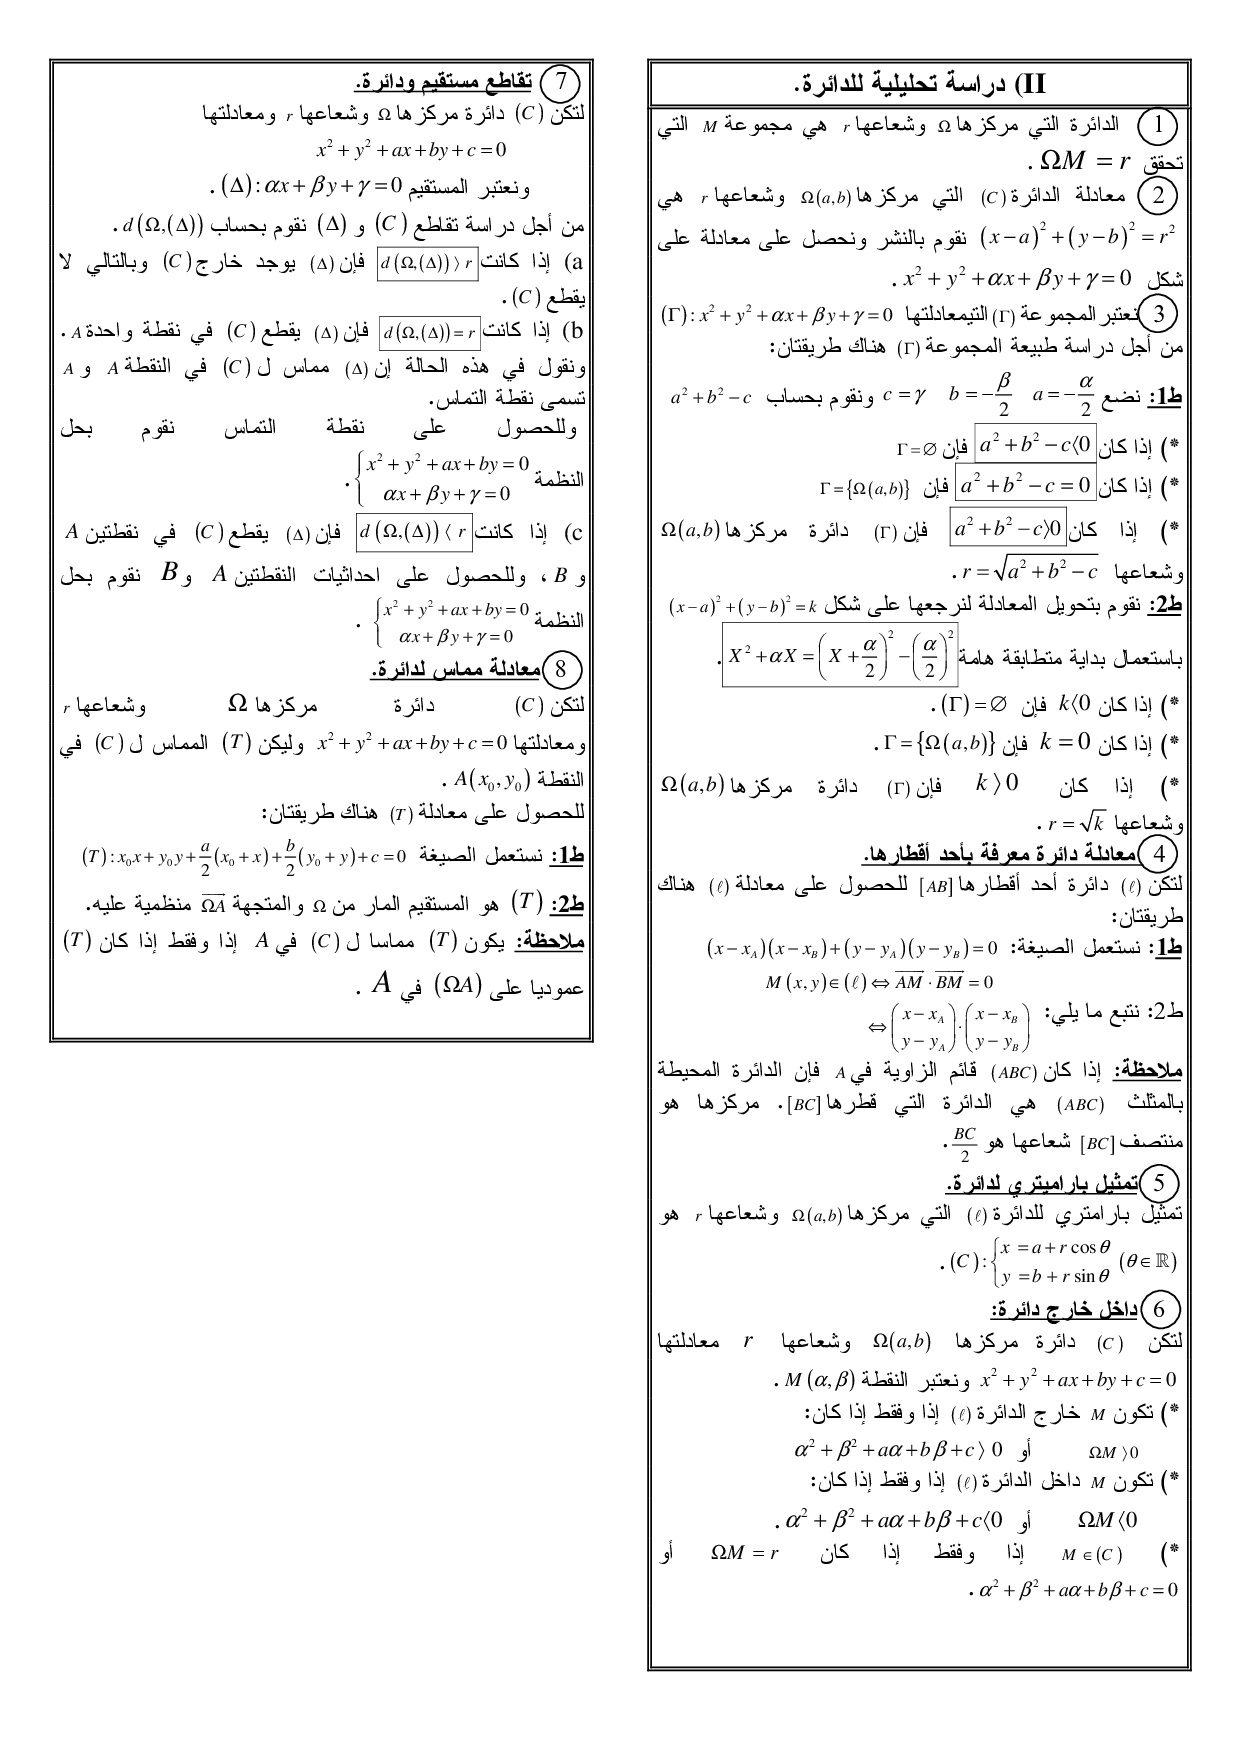 II) دراسة تحليلية للدائرة.
1 الدائرة التي مركزها Ω وشعاعها r هي مجموعة M التي
تحقق ΩM = r .
2 معادلة الدائرة (C) التي مركزها Ω(a,b) وشعاعها r هي
(x−a)² + (y−b)² = r² نقوم بالنشر ونحصل على معادلة على
شكل x² + y² + αx + βy + γ = 0 .
3 نعتبر المجموعة (Γ) التيمعادلتها (Γ): x² + y² + αx + βy + γ = 0
من أجل دراسة طبيعة المجموعة (Γ) هناك طريقتان:
ط1: نضع a = −α/2 b = −β/2 c = γ ونقوم بحساب a² + b² − c
*) إذا كان a² + b² − c⟨0 فإن Γ = ∅
*) إذا كان a² + b² − c = 0 فإن Γ = {Ω(a,b)}
*) إذا كان a² + b² − c⟩0 فإن (Γ) دائرة مركزها Ω(a,b)
وشعاعها r = √(a² + b² − c) .
ط2: نقوم بتحويل المعادلة لنرجعها على شكل (x−a)² + (y−b)² = k
باستعمال بداية متطابقة هامة X² + αX = (X + α/2)² − (α/2)² .
*) إذا كان k⟨0 فإن (Γ) = ∅ .
*) إذا كان k = 0 فإن Γ = {Ω(a,b)} .
*) إذا كان k ⟩0 فإن (Γ) دائرة مركزها Ω(a,b)
وشعاعها r = √k .
4 معادلة دائرة معرفة بأحد أقطارها.
لتكن (ℓ) دائرة أحد أقطارها [AB] للحصول على معادلة (ℓ) هناك
طريقتان:
ط1: نستعمل الصيغة: (x − x_A)(x − x_B) + (y − y_A)(y − y_B) = 0
M(x,y) ∈ (ℓ) ⇔ AM⃗ · BM⃗ = 0
ط2: نتبع ما يلي: ⇔ (x − x_A ; y − y_A) · (x − x_B ; y − y_B)
ملاحظة: إذا كان (ABC) قائم الزاوية في A فإن الدائرة المحيطة
بالمثلث (ABC) هي الدائرة التي قطرها [BC]. مركزها هو
منتصف [BC] شعاعها هو BC/2 .
5 تمثيل باراميتري لدائرة.
تمثيل بارامتري للدائرة (ℓ) التي مركزها Ω(a,b) وشعاعها r هو
(C): { x = a + r cos θ ; y = b + r sin θ (θ ∈ ℝ) .
6 داخل خارج دائرة:
لتكن (C) دائرة مركزها Ω(a,b) وشعاعها r معادلتها
x² + y² + ax + by + c = 0 ونعتبر النقطة M(α,β) .
*) تكون M خارج الدائرة (ℓ) إذا وفقط إذا كان:
ΩM ⟩0 أو α² + β² + aα + bβ + c ⟩ 0
*) تكون M داخل الدائرة (ℓ) إذا وفقط إذا كان:
ΩM ⟨0 أو α² + β² + aα + bβ + c⟨0 .
*) M ∈ (C) إذا وفقط إذا كان ΩM = r أو
α² + β² + aα + bβ + c = 0 .
7 تقاطع مستقيم ودائرة.
لتكن (C) دائرة مركزها Ω وشعاعها r ومعادلتها
x² + y² + ax + by + c = 0
ونعتبر المستقيم (Δ): αx + βy + γ = 0 .
من أجل دراسة تقاطع (C) و (Δ) نقوم بحساب d(Ω,(Δ)) .
a) إذا كانت d(Ω,(Δ)) ⟩ r فإن (Δ) يوجد خارج (C) وبالتالي لا
يقطع (C) .
b) إذا كانت d(Ω,(Δ)) = r فإن (Δ) يقطع (C) في نقطة واحدة A .
ونقول في هذه الحالة إن (Δ) مماس ل (C) في النقطة A و A
تسمى نقطة التماس.
وللحصول على نقطة التماس نقوم بحل
النظمة { x² + y² + ax + by = 0 ; αx + βy + γ = 0 .
c) إذا كانت d(Ω,(Δ)) ⟨ r فإن (Δ) يقطع (C) في نقطتين A
و B ، وللحصول على احداثيات النقطتين A و B نقوم بحل
النظمة { x² + y² + ax + by = 0 ; αx + βy + γ = 0 .
8 معادلة مماس لدائرة.
لتكن (C) دائرة مركزها Ω وشعاعها r
ومعادلتها x² + y² + ax + by + c = 0 وليكن (T) المماس ل (C) في
النقطة A(x₀, y₀) .
للحصول على معادلة (T) هناك طريقتان:
ط1: نستعمل الصيغة (T): x₀x + y₀y + a/2(x₀ + x) + b/2(y₀ + y) + c = 0
ط2: (T) هو المستقيم المار من Ω والمتجهة ΩA⃗ منظمية عليه.
ملاحظة: يكون (T) مماسا ل (C) في A إذا وفقط إذا كان (T)
عموديا على (ΩA) في A .